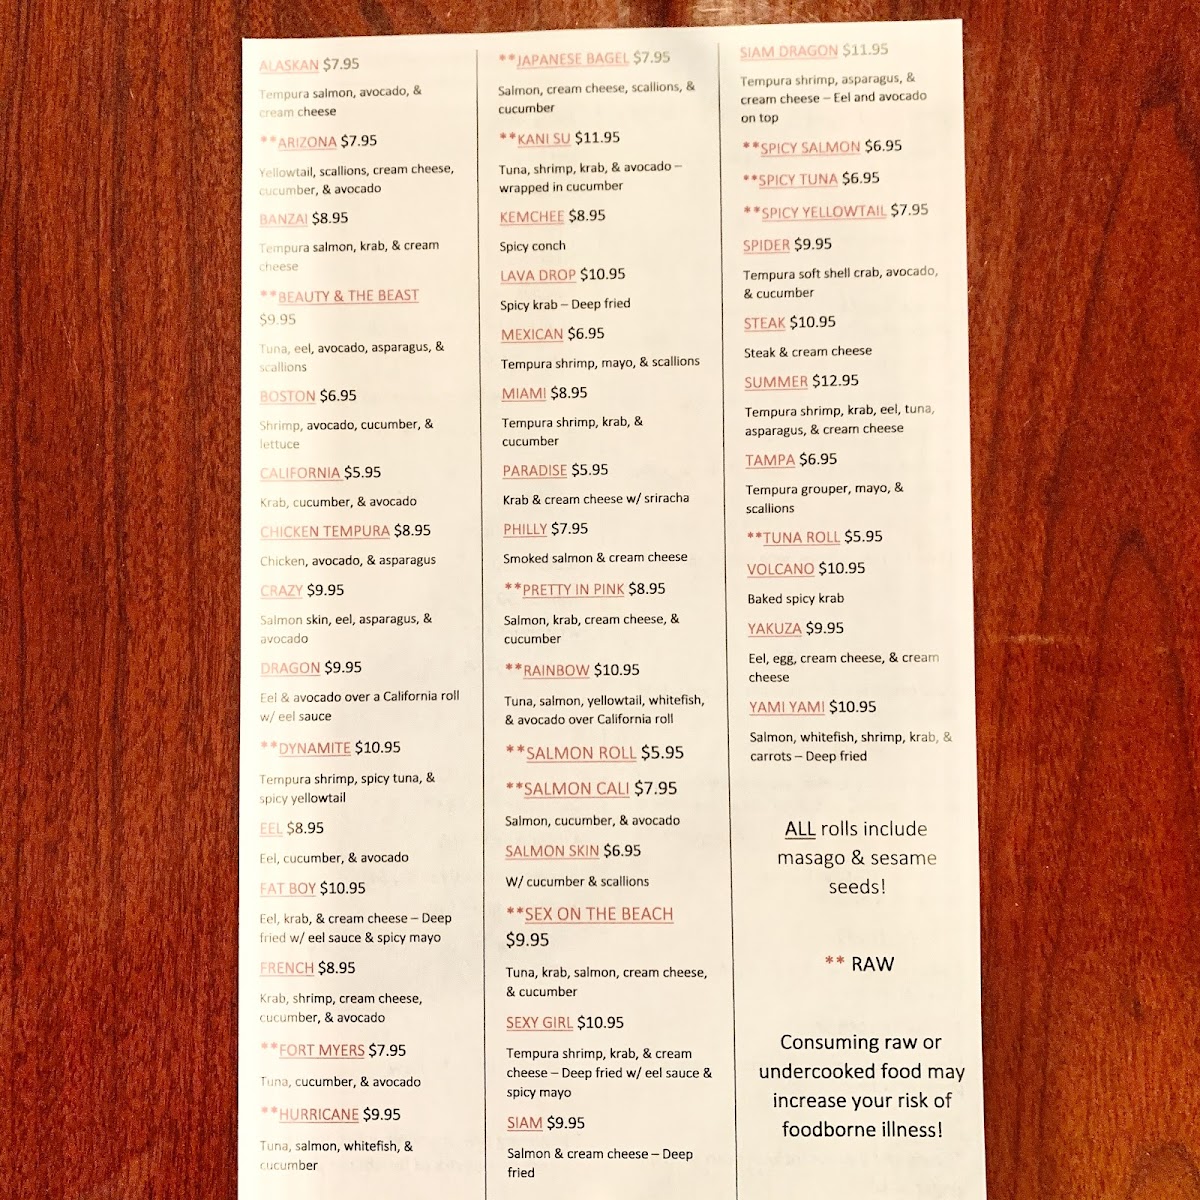 ALASKAN $7.95
Tempura salmon, avocado, &
cream cheese
**ARIZONA $7.95
Yellowtail, scallions, cream cheese,
cucumber, & avocado
BANZAI $8.95
Tempura salmon, krab, & cream
cheese
**BEAUTY & THE BEAST
$9.95
Tuna, eel, avocado, asparagus, &
scallions
BOSTON $6.95
Shrimp, avocado, cucumber, &
lettuce
CALIFORNIA $5.95
Krab, cucumber, & avocado
CHICKEN TEMPURA $8.95
Chicken, avocado, & asparagus
CRAZY $9.95
Salmon skin, eel, asparagus, &
avocado
DRAGON $9.95
Eel & avocado over a California roll
w/ eel sauce
**DYNAMITE $10.95
Tempura shrimp, spicy tuna, &
spicy yellowtail
EEL $8.95
Eel, cucumber, & avocado
FAT BOY $10.95
Eel, krab, & cream cheese – Deep
fried w/ eel sauce & spicy mayo
FRENCH $8.95
Krab, shrimp, cream cheese,
cucumber, & avocado
**FORT MYERS $7.95
Tuna, cucumber, & avocado
**HURRICANE $9.95
Tuna, salmon, whitefish, &
cucumber
**JAPANESE BAGEL $7.95
Salmon, cream cheese, scallions, &
cucumber
**KANI SU $11.95
Tuna, shrimp, krab, & avocado –
wrapped in cucumber
KEMCHEE $8.95
Spicy conch
LAVA DROP $10.95
Spicy krab – Deep fried
MEXICAN $6.95
Tempura shrimp, mayo, & scallions
MIAMI $8.95
Tempura shrimp, krab, &
cucumber
PARADISE $5.95
Krab & cream cheese w/ sriracha
PHILLY $7.95
Smoked salmon & cream cheese
**PRETTY IN PINK $8.95
Salmon, krab, cream cheese, &
cucumber
**RAINBOW $10.95
Tuna, salmon, yellowtail, whitefish,
& avocado over California roll
**SALMON ROLL $5.95
**SALMON CALI $7.95
Salmon, cucumber, & avocado
SALMON SKIN $6.95
W/ cucumber & scallions
**SEX ON THE BEACH
$9.95
Tuna, krab, salmon, cream cheese,
& cucumber
SEXY GIRL $10.95
Tempura shrimp, krab, & cream
cheese – Deep fried w/ eel sauce &
spicy mayo
SIAM $9.95
Salmon & cream cheese – Deep
fried
SIAM DRAGON $11.95
Tempura shrimp, asparagus, &
cream cheese – Eel and avocado
on top
**SPICY SALMON $6.95
**SPICY TUNA $6.95
**SPICY YELLOWTAIL $7.95
SPIDER $9.95
Tempura soft shell crab, avocado,
& cucumber
STEAK $10.95
Steak & cream cheese
SUMMER $12.95
Tempura shrimp, krab, eel, tuna,
asparagus, & cream cheese
TAMPA $6.95
Tempura grouper, mayo, &
scallions
**TUNA ROLL $5.95
VOLCANO $10.95
Baked spicy krab
YAKUZA $9.95
Eel, egg, cream cheese, & cream
cheese
YAMI YAMI $10.95
Salmon, whitefish, shrimp, krab, &
carrots – Deep fried
ALL rolls include
masago & sesame
seeds!
** RAW
Consuming raw or
undercooked food may
increase your risk of
foodborne illness!